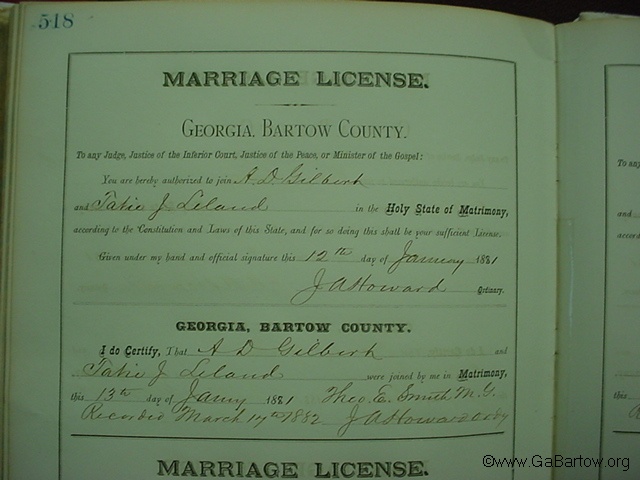 518
MARRIAGE LICENSE.
GEORGIA, BARTOW COUNTY.
To any Judge, Justice of the Inferior Court, Justice of the Peace, or Minister of the Gospel:
You are hereby authorized to join A. D. Gilbert
and Tatie J Leland in the Holy State of Matrimony,
according to the Constitution and Laws of this State, and for so doing this shall be your sufficient License.
Given under my hand and official signature this 12th day of January 1881
J A Howard Ordinary.
GEORGIA, BARTOW COUNTY.
I do Certify, That A D Gilbert and
Tatie J Leland were joined by me in Matrimony,
this 13th day of Jany 1881 Theo. E. Smith M. G.
Recorded March 17th 1882 J A Howard Ordy
MARRIAGE LICENSE.
To any
and
according
this
©www.GaBartow.org